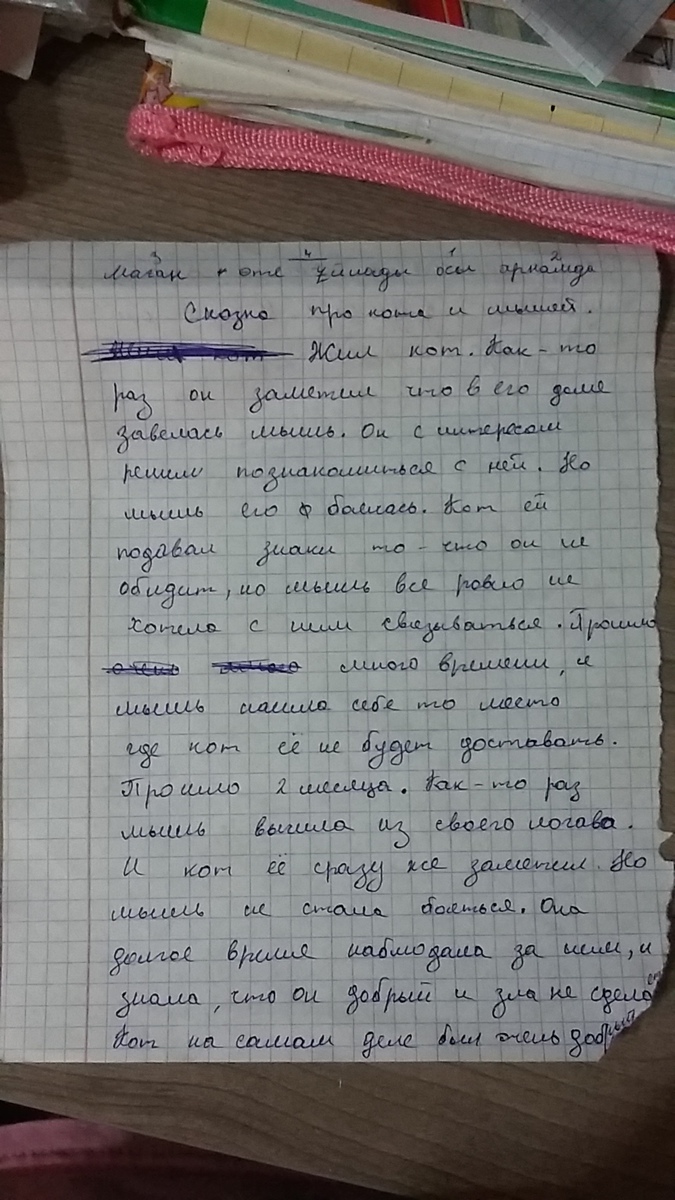 3 4 1 2
маған өте ұйнады осы арнамда
Сказка про кота и мышей.
Жил кот. Как-то
раз он заметил что в его доме
завелась мышь. Он с интересом
решил познакомиться с ней. Но
мышь его боялась. Кот ей
подавал знаки то-что он не
обидит, но мышь все ровно не
хотела с ним связываться. Прошло
очень много времени, и
мышь нашла себе то место
где кот её не будет доставать.
Прошло 2 месяца. Как-то раз
мышь вышла из своего логава.
И кот её сразу же заметил. Но
мышь не стала бояться. Она
долгое время наблюдала за ним, и
знала, что он добрый и зла не сделает
Кот на самам деле был очень добрый